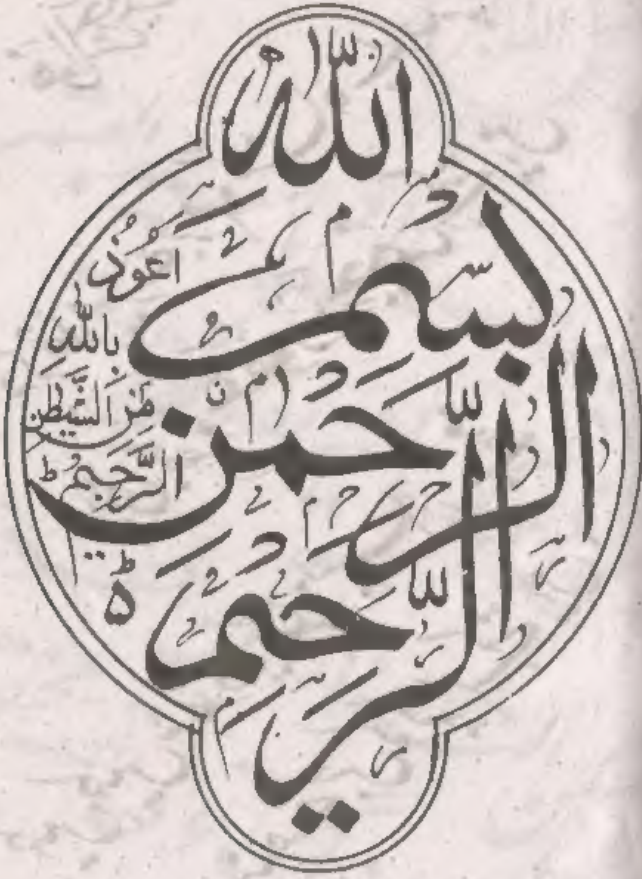 اعوذ
بالله
من الشيطن
الرجيم ط
بسم
الله
الرحمن
الرحيم